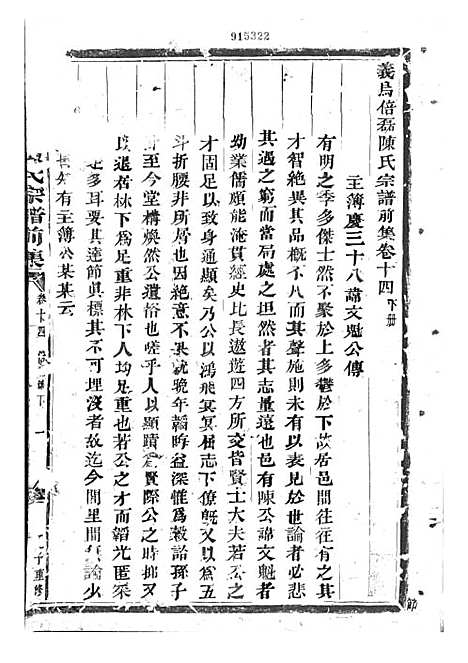 915322
義烏倍磊陳氏宗譜前集卷十四下册
主簿慶三十八諱文魁公傳
有明之季多傑士然不聚於上多鬱於下故居邑間往往有之其
才智絶異其品概不凡而其聲施則未有以表見於世論者必悲
其遇之窮而當局處之坦然者其志量遠也邑有陳公諱文魁者
幼業儒頗能淹貫經史比長遨遊四方所交皆賢士大夫若公之
才固足以致身通顯矣乃公以鴻飛冥冥屈志下僚旣又以爲五
斗折腰非所屑也飄然而逸就晚年韜晦益深惟爲穀詒孫子
計至今堂構煥然公遺俗也嗟乎人以顯蹟爲賢際公之時抑又
以退若林下爲足重非林下人均足重也若公之才而韜光匿采
是多耳要其達節眞標其不可埋沒者故迄今閭里間論少
有主簿公某某云
氏宗譜前集
卷十四
下
一
重修